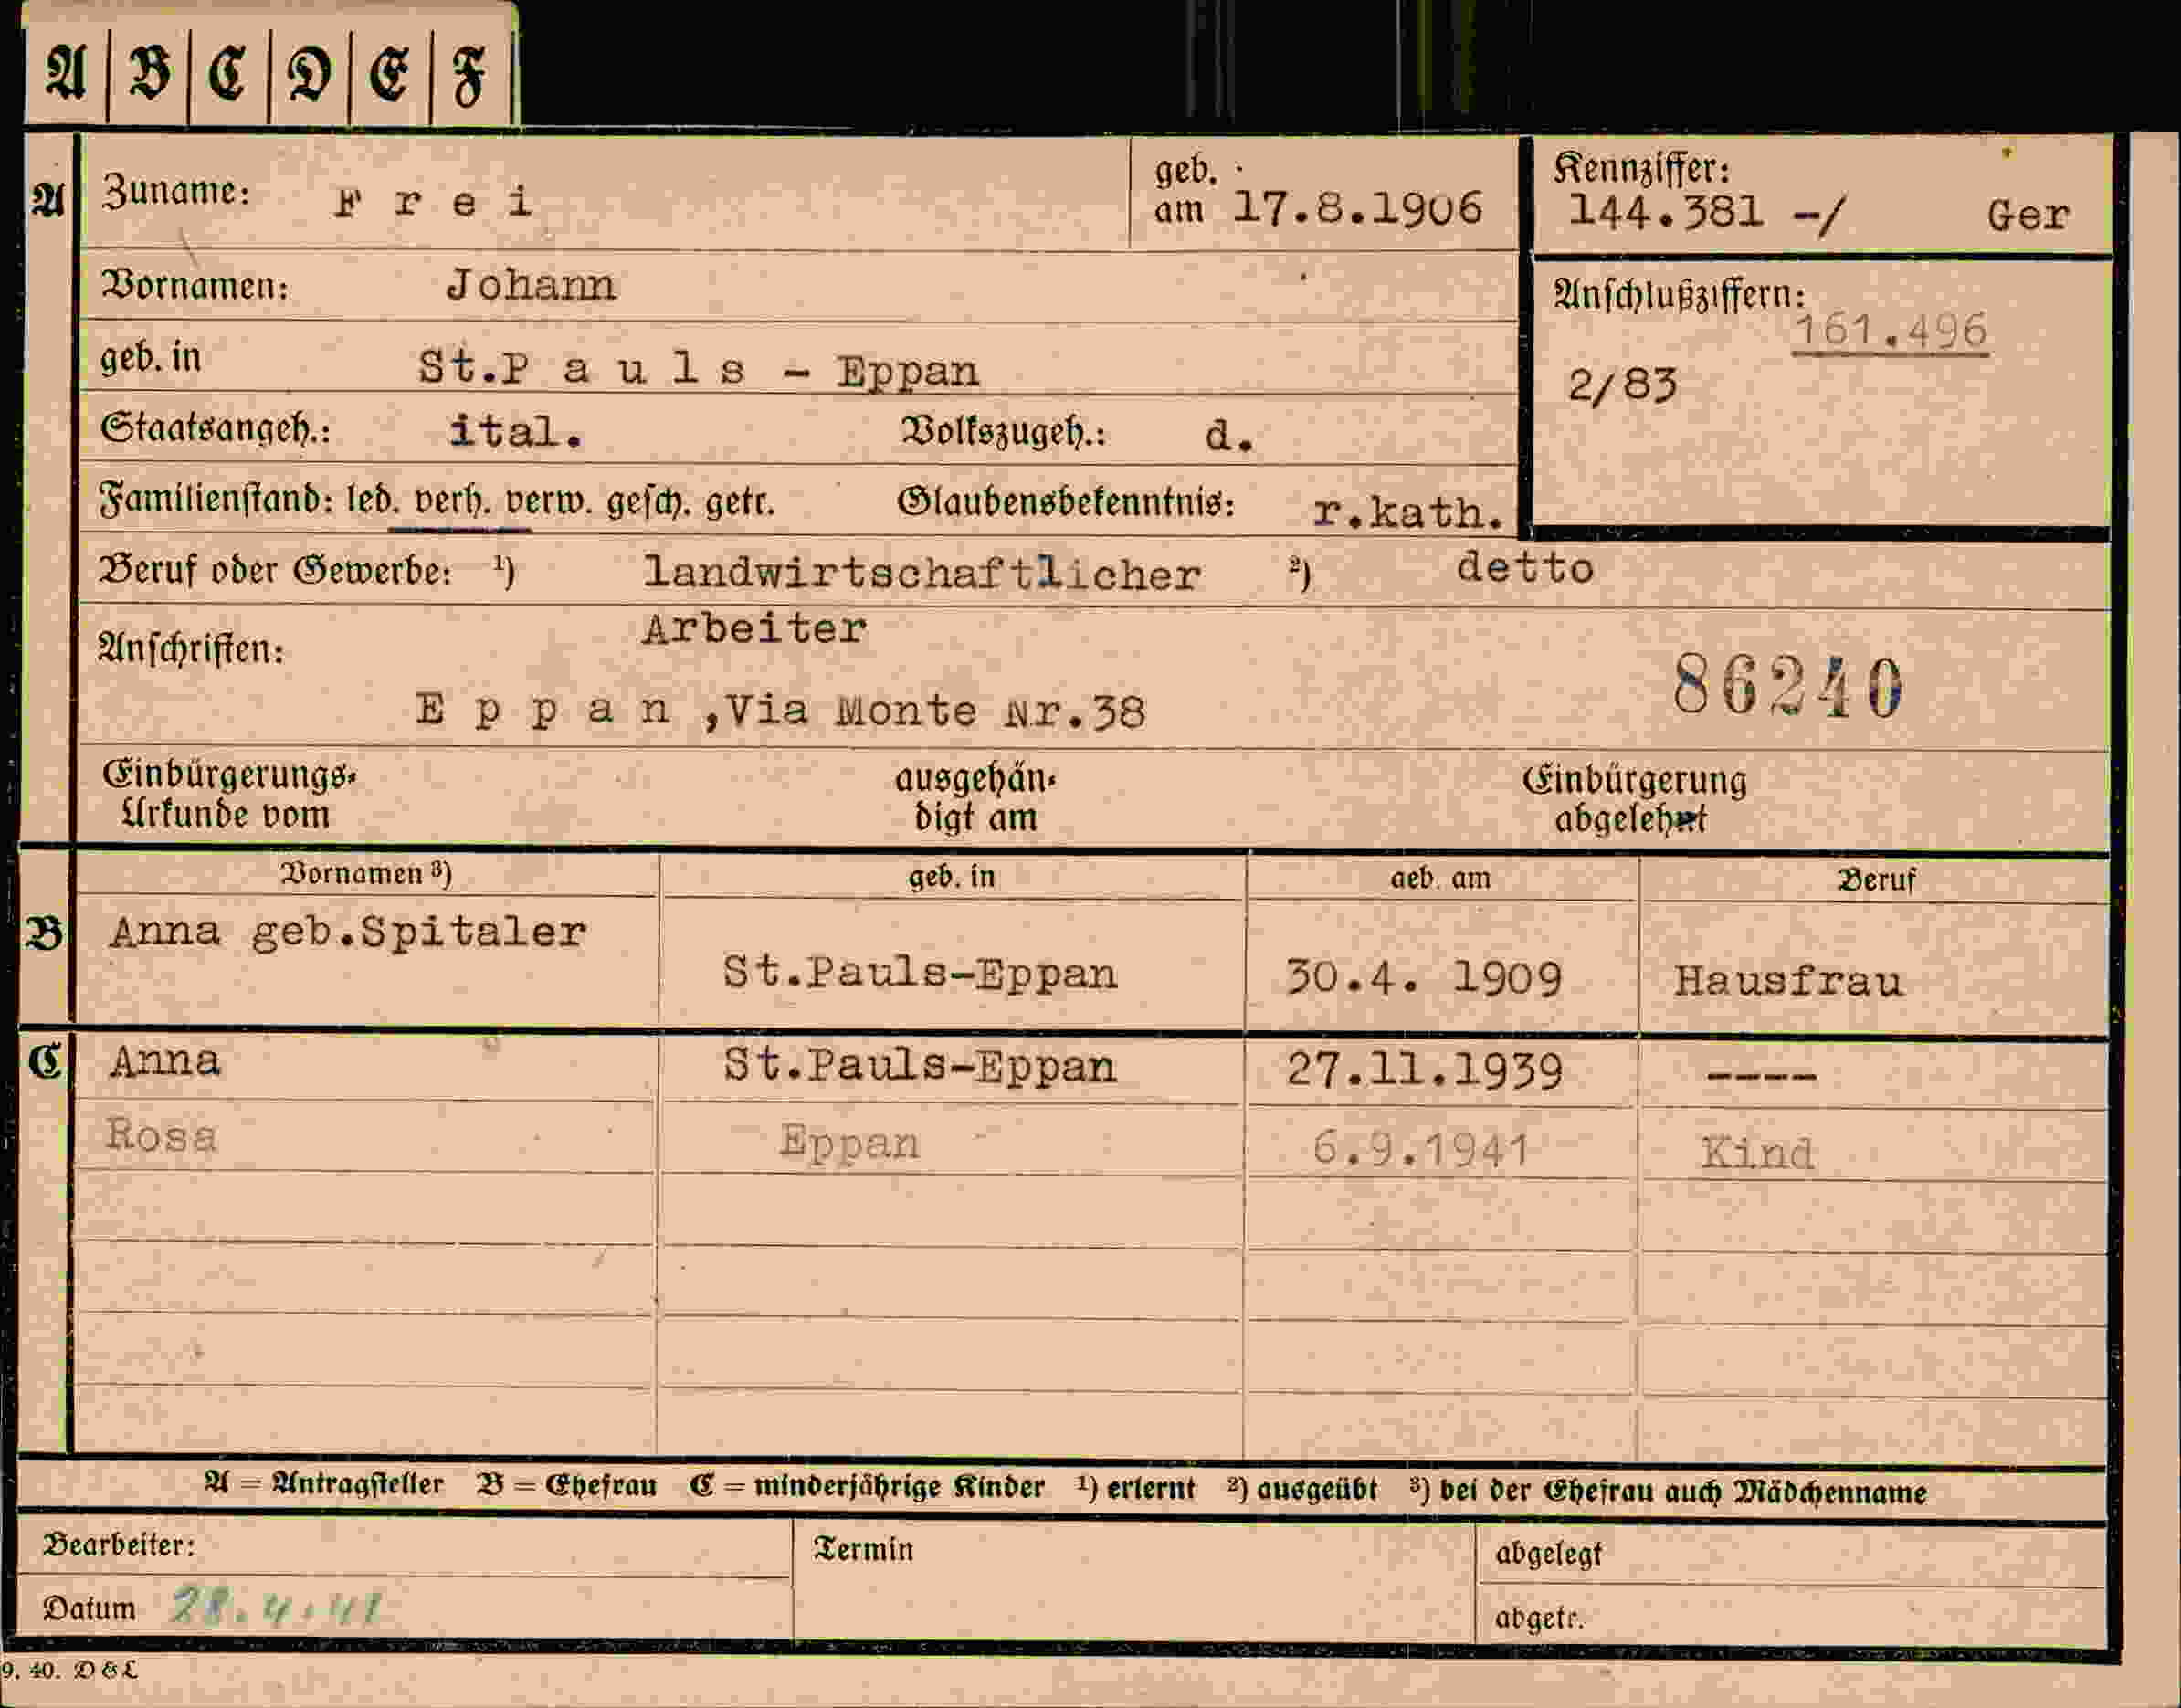 A | B | C | D | E | F
A Zuname: Frei geb. am 17.8.1906 Kennziffer: 144.381 -/ Ger
Vornamen: Johann Anschlußziffern: 161.496
geb. in St.Pauls - Eppan 2/83
Staatsangeh.: ital. Volkszugeh.: d.
Familienstand: led. verh. verw. gesch. getr. Glaubensbekenntnis: r.kath.
Beruf oder Gewerbe: ¹) landwirtschaftlicher ²) detto
Arbeiter
Anschriften:
Eppan ,Via Monte Nr.38 86240
Einbürgerungs- ausgehän- Einbürgerung
Urkunde vom digt am abgelehnt
Vornamen ³) geb. in geb. am Beruf
B Anna geb.Spitaler St.Pauls-Eppan 30.4. 1909 Hausfrau
C Anna St.Pauls-Eppan 27.11.1939 ----
Rosa Eppan 6.9.1941 Kind
A = Antragsteller B = Ehefrau C = minderjährige Kinder ¹) erlernt ²) ausgeübt ³) bei der Ehefrau auch Mädchenname
Bearbeiter: Termin abgelegt
Datum 28.4.41 abgetr.
9. 40. D & L